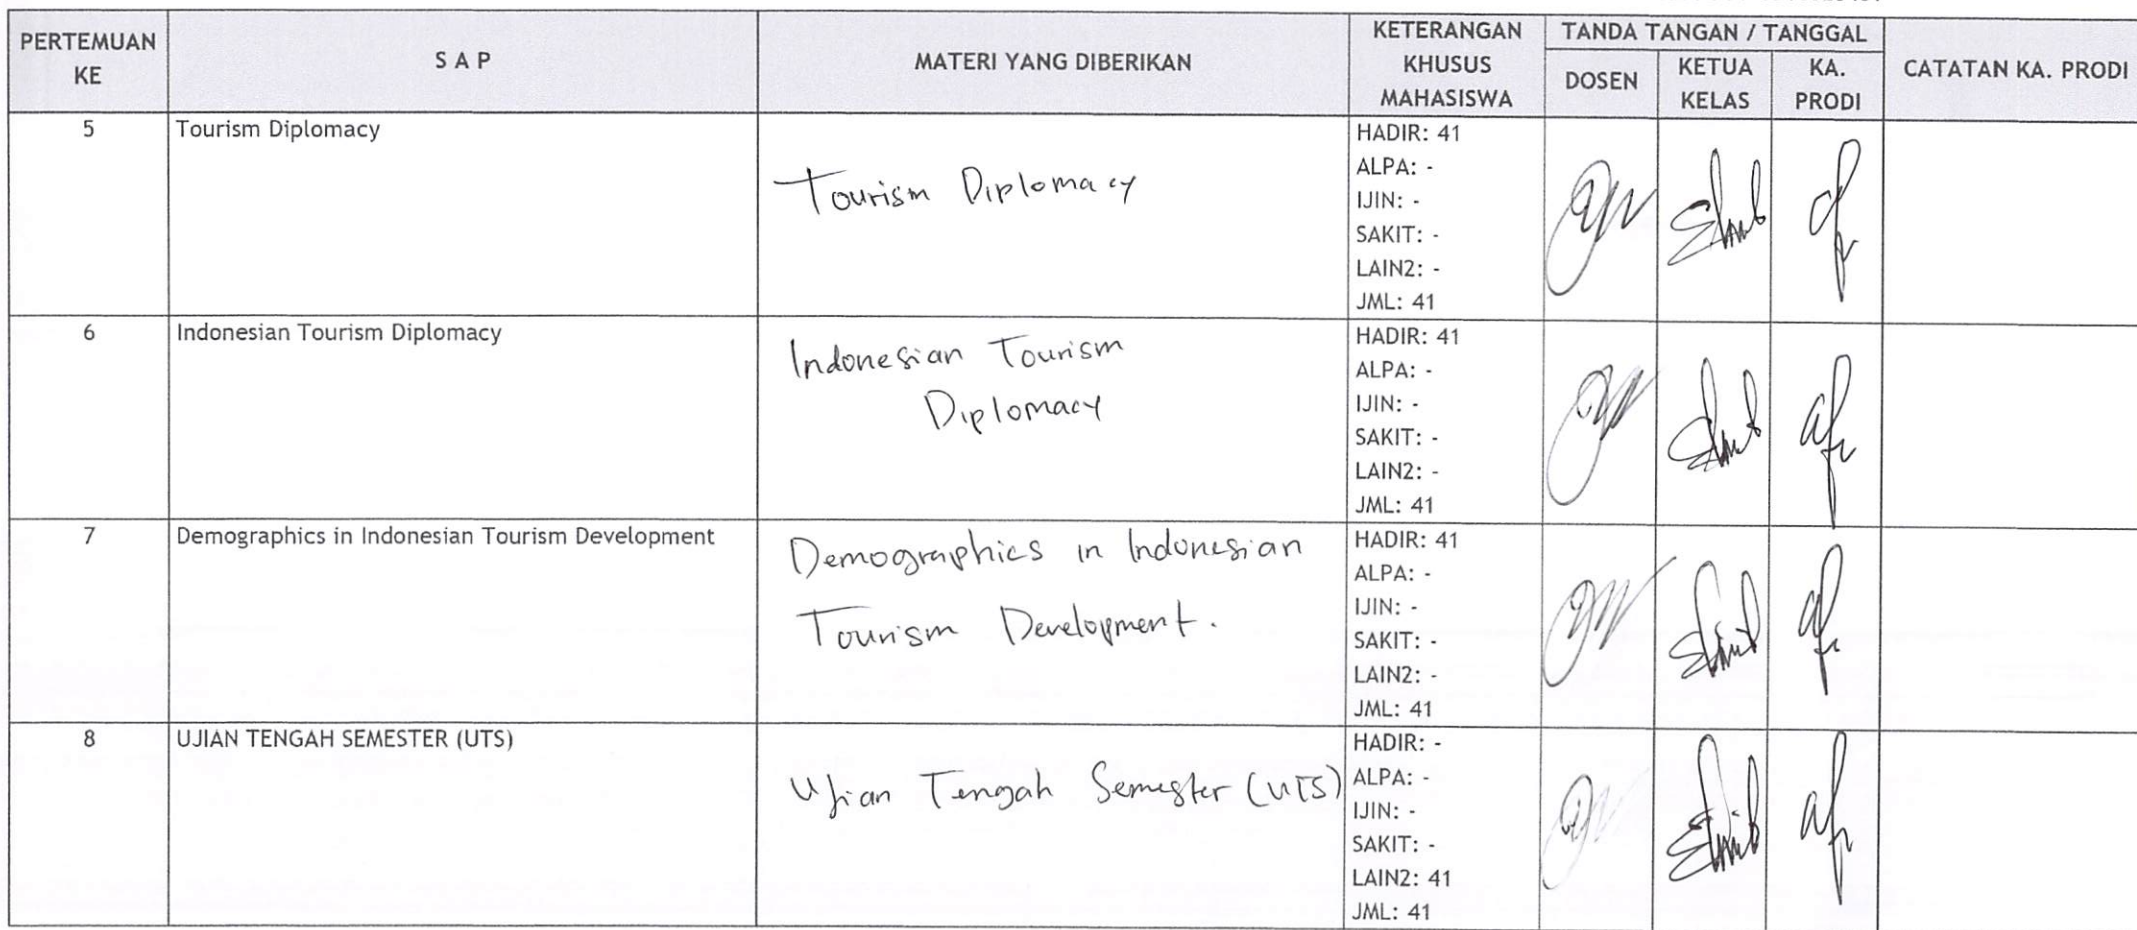 PERTEMUAN KE
S A P
MATERI YANG DIBERIKAN
KETERANGAN KHUSUS MAHASISWA
TANDA TANGAN / TANGGAL
DOSEN
KETUA KELAS
KA. PRODI
CATATAN KA. PRODI
5
Tourism Diplomacy
Tourism Diplomacy
HADIR: 41
ALPA: -
IJIN: -
SAKIT: -
LAIN2: -
JML: 41
6
Indonesian Tourism Diplomacy
Indonesian Tourism
Diplomacy
HADIR: 41
ALPA: -
IJIN: -
SAKIT: -
LAIN2: -
JML: 41
7
Demographics in Indonesian Tourism Development
Demographics in Indonesian
Tourism Development.
HADIR: 41
ALPA: -
IJIN: -
SAKIT: -
LAIN2: -
JML: 41
8
UJIAN TENGAH SEMESTER (UTS)
Ujian Tengah Semester (UTS)
HADIR: -
ALPA: -
IJIN: -
SAKIT: -
LAIN2: 41
JML: 41